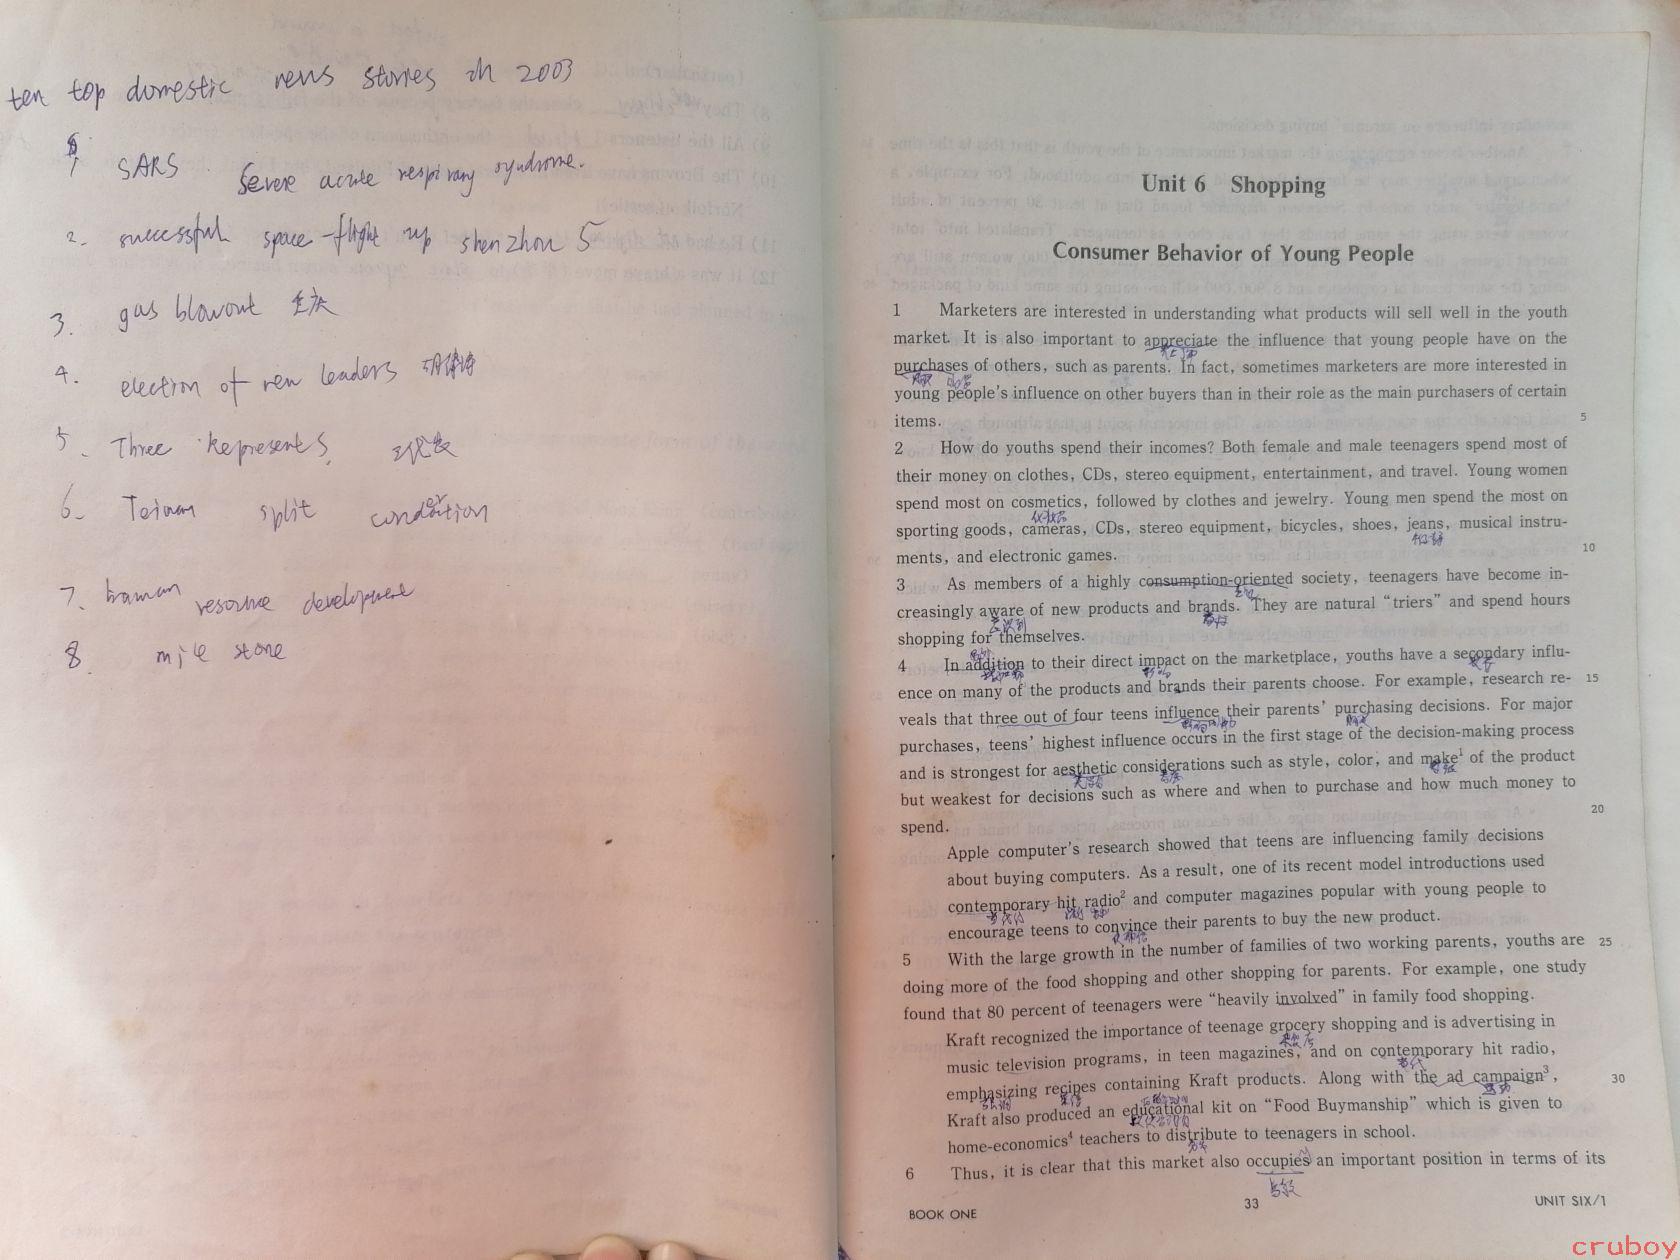 ten top domestic news stories in 2003
1 SARS Severe acute respirary syndrome.
2. successful space-flight up shenzhou 5
3. gas blowout 重庆
4. election of new leaders 胡锦涛
5. Three Represents. 三代表
6. Taiwan split condition
7. human resource development
8. mile stone
Unit 6 Shopping
Consumer Behavior of Young People
1 Marketers are interested in understanding what products will sell well in the youth
market. It is also important to appreciate the influence that young people have on the
purchases of others, such as parents. In fact, sometimes marketers are more interested in
购买
young people's influence on other buyers than in their role as the main purchasers of certain
items. 5
2 How do youths spend their incomes? Both female and male teenagers spend most of
their money on clothes, CDs, stereo equipment, entertainment, and travel. Young women
spend most on cosmetics, followed by clothes and jewelry. Young men spend the most on
化妆品
sporting goods, cameras, CDs, stereo equipment, bicycles, shoes, jeans, musical instru-
牛仔裤
ments, and electronic games. 10
3 As members of a highly consumption-oriented society, teenagers have become in-
creasingly aware of new products and brands. They are natural "triers" and spend hours
意识到
shopping for themselves.
4 In addition to their direct impact on the marketplace, youths have a secondary influ-
影响
ence on many of the products and brands their parents choose. For example, research re- 15
veals that three out of four teens influence their parents' purchasing decisions. For major
购买
purchases, teens' highest influence occurs in the first stage of the decision-making process
and is strongest for aesthetic considerations such as style, color, and make¹ of the product
考虑
but weakest for decisions such as where and when to purchase and how much money to
spend. 20
Apple computer's research showed that teens are influencing family decisions
about buying computers. As a result, one of its recent model introductions used
contemporary hit radio² and computer magazines popular with young people to
当代的
encourage teens to convince their parents to buy the new product.
使相信
5 With the large growth in the number of families of two working parents, youths are 25
doing more of the food shopping and other shopping for parents. For example, one study
found that 80 percent of teenagers were "heavily involved" in family food shopping.
Kraft recognized the importance of teenage grocery shopping and is advertising in
杂货店
music television programs, in teen magazines, and on contemporary hit radio,
当代
emphasizing recipes containing Kraft products. Along with the ad campaign³, 30
强调
Kraft also produced an educational kit on "Food Buymanship" which is given to
home-economics⁴ teachers to distribute to teenagers in school.
6 Thus, it is clear that this market also occupies an important position in terms of its
BOOK ONE 33 UNIT SIX/1
cruboy